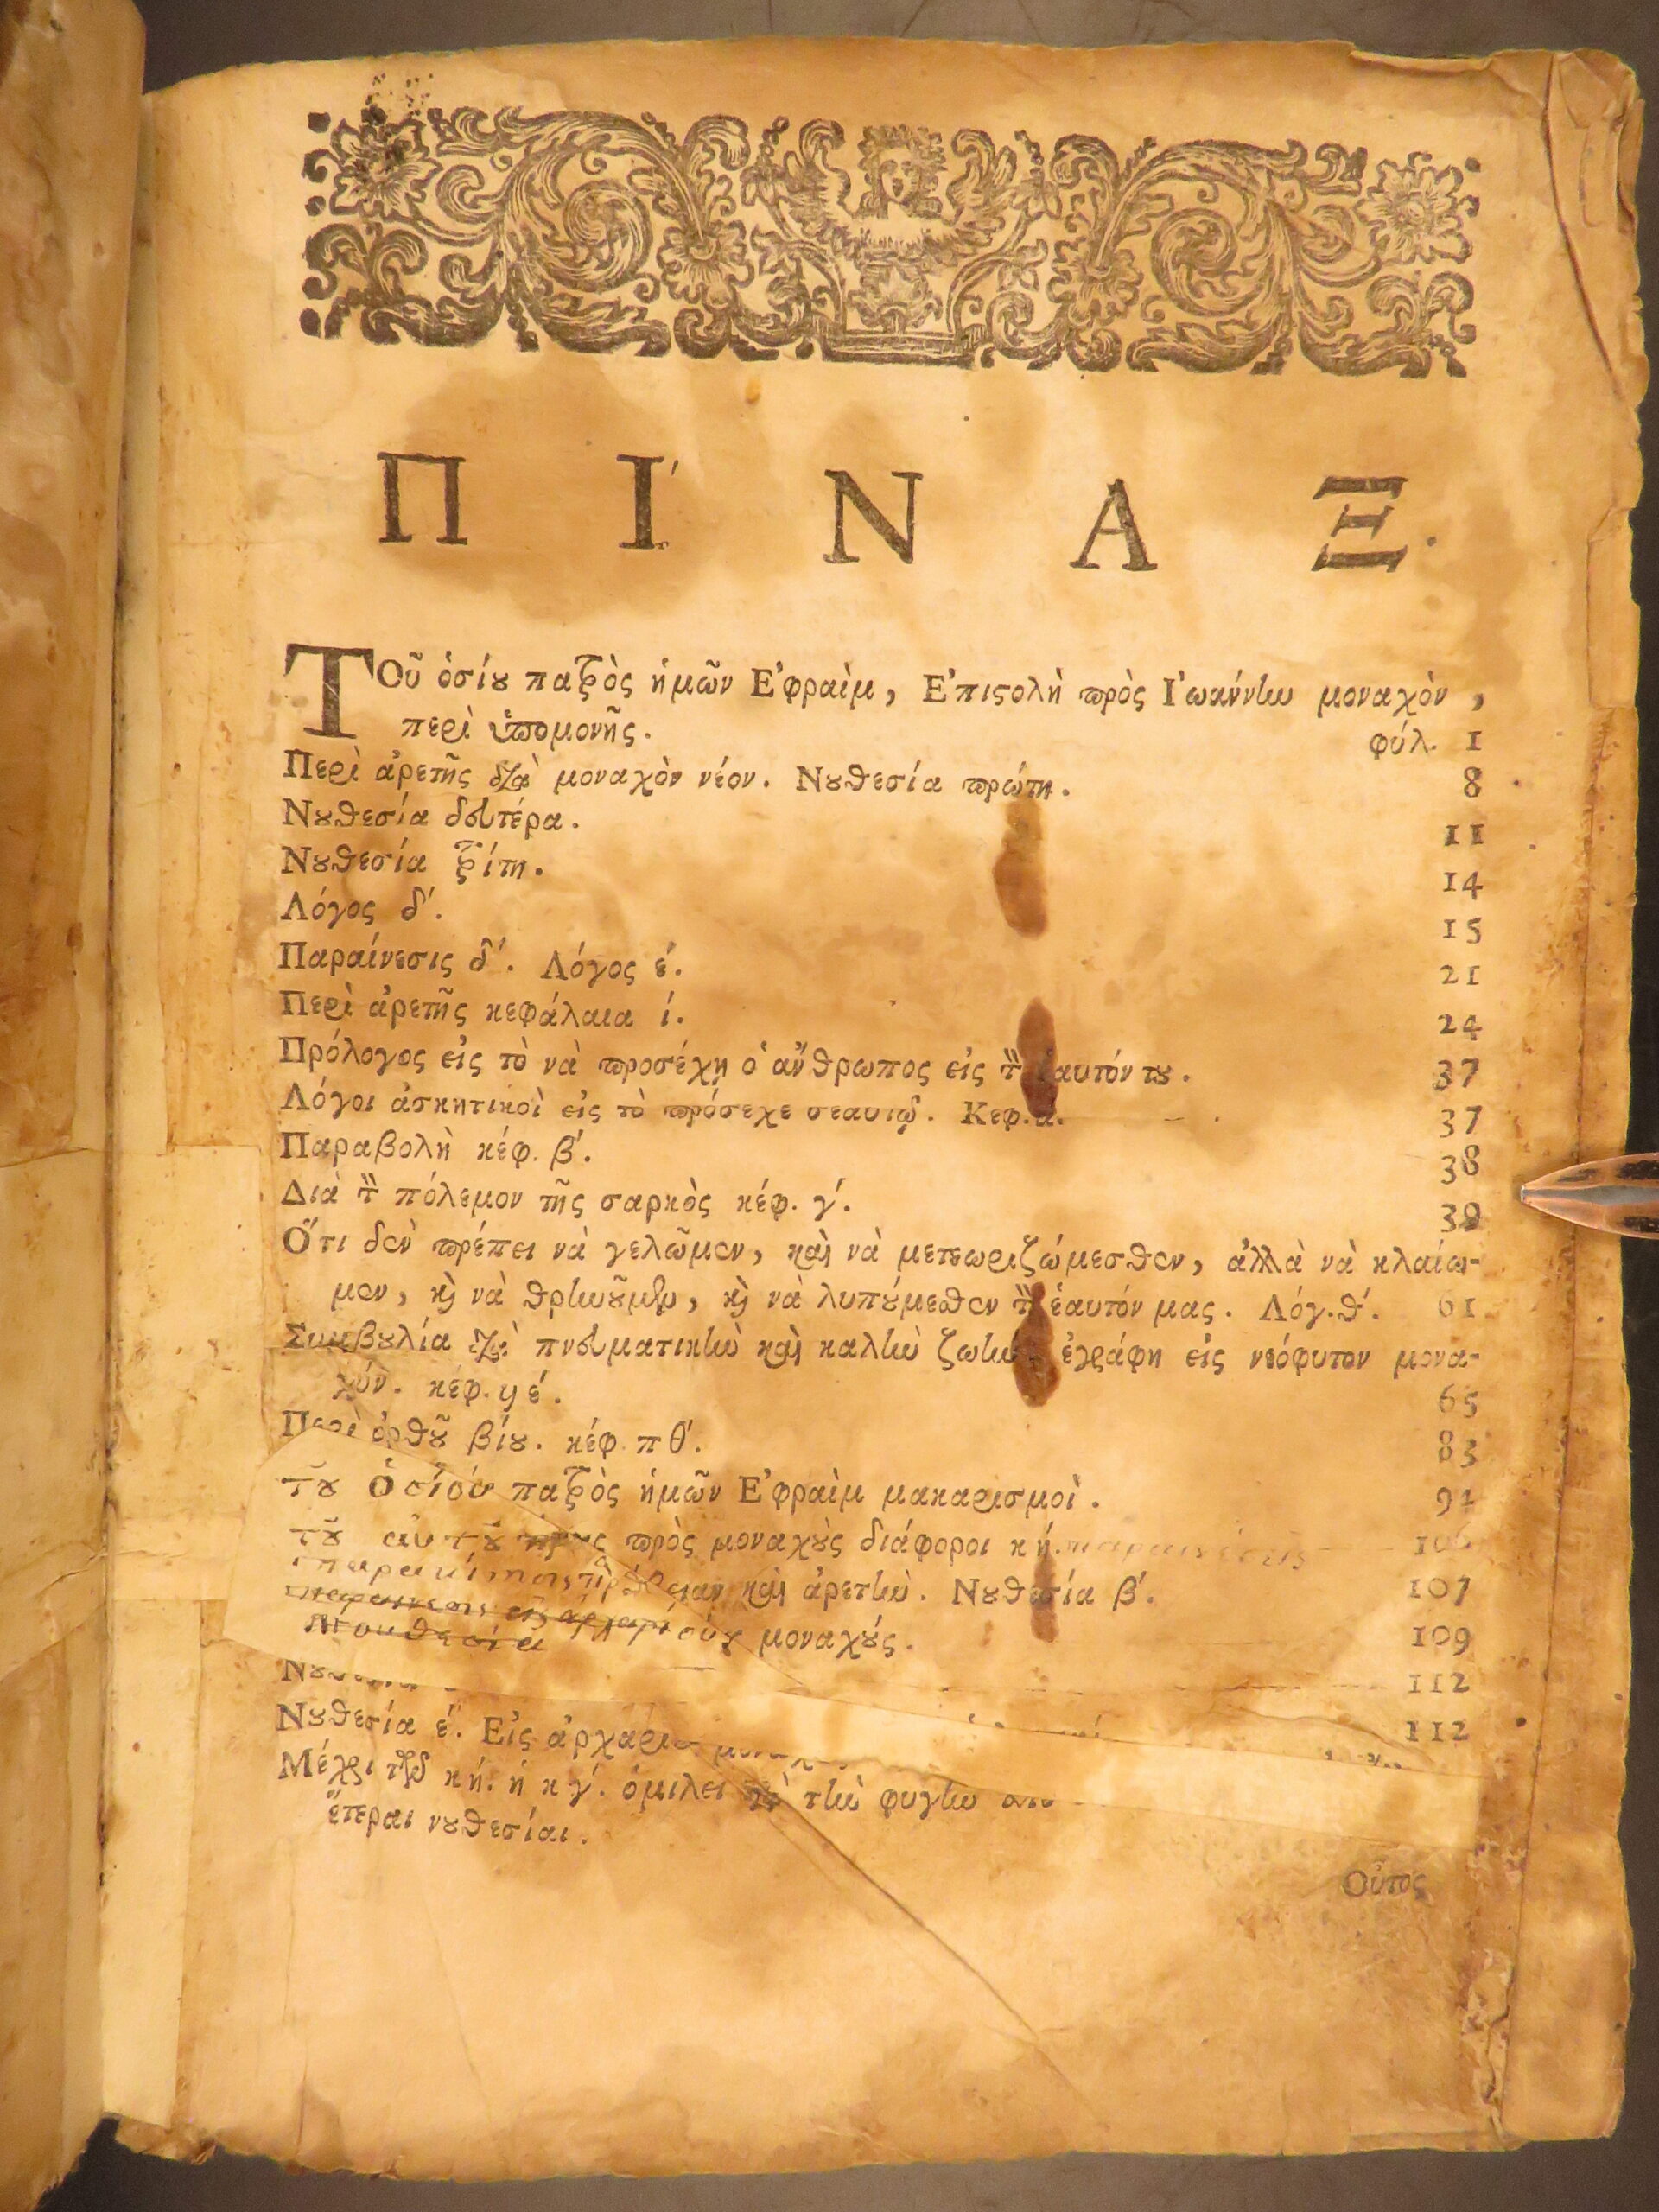 ΠΙ´ΝΑΞ.
ΤΟῦ ὁσίȣ πατρὸς ἡμῶν Ε᾿φραὶμ, Ε᾿πιϛολὴ πρὸς Ι᾿ωάννην μοναχὸν,
περὶ ὑπομονῆς. φύλ. 1
Περὶ ἀρετῆς διὰ μοναχὸν νέον. Νȣθεσία πρώτη. 8
Νȣθεσία δευτέρα. 11
Νȣθεσία τρίτη. 14
Λόγος δ´. 15
Παραίνεσις δ´. Λόγος έ. 21
Περὶ ἀρετῆς κεφάλαια ί. 24
Πρόλογος εἰς τὸ νὰ προσέχῃ ὁ ἄνθρωπος εἰς τὸν ἑαυτόν τȣ. 37
Λόγοι ἀσκητικοὶ εἰς τὸ πρόσεχε σεαυτῷ. Κεφ. ά. 37
Παραβολὴ κέφ. β´. 38
Διὰ τὸν πόλεμον τῆς σαρκὸς κέφ. γ´. 39
Ὅτι δὲν πρέπει νὰ γελῶμεν, καὶ νὰ μετεωριζώμεσθεν, ἀλλὰ νὰ κλαίω-
μεν, κὶ νὰ θρηνȣ͂μεν, κὶ νὰ λυπȣ́μεσθεν τὸν ἑαυτόν μας. Λόγ. θ´. 61
Συμβȣλία διὰ πνευματικὴν καὶ καλὴν ζωὴν ἐγράφη εἰς νεόφυτον μονα-
χόν. κέφ. ϟέ. 65
Περὶ ὀρθȣ͂ βίȣ. κέφ. πθ´. 83
τȣ͂ Ὁσίου πατρὸς ἡμῶν Ε᾿φραὶμ μακαρισμοὶ. 94
τȣ͂ αὐτȣ͂ πρὸς μοναχȣ̀ς διάφοροι κή. παραινέσεις 106
καὶ ἀρετὴν. Νȣθεσία β´. 107
μοναχȣ́ς. 109
112
Νȣθεσία έ. Εἰς 112
Μέχρι τῶν κή. ἡ κγ´. ὁμιλεῖ διὰ τὴν φυγὴν
ἕτεραι νȣθεσίαι.
Οὗτος